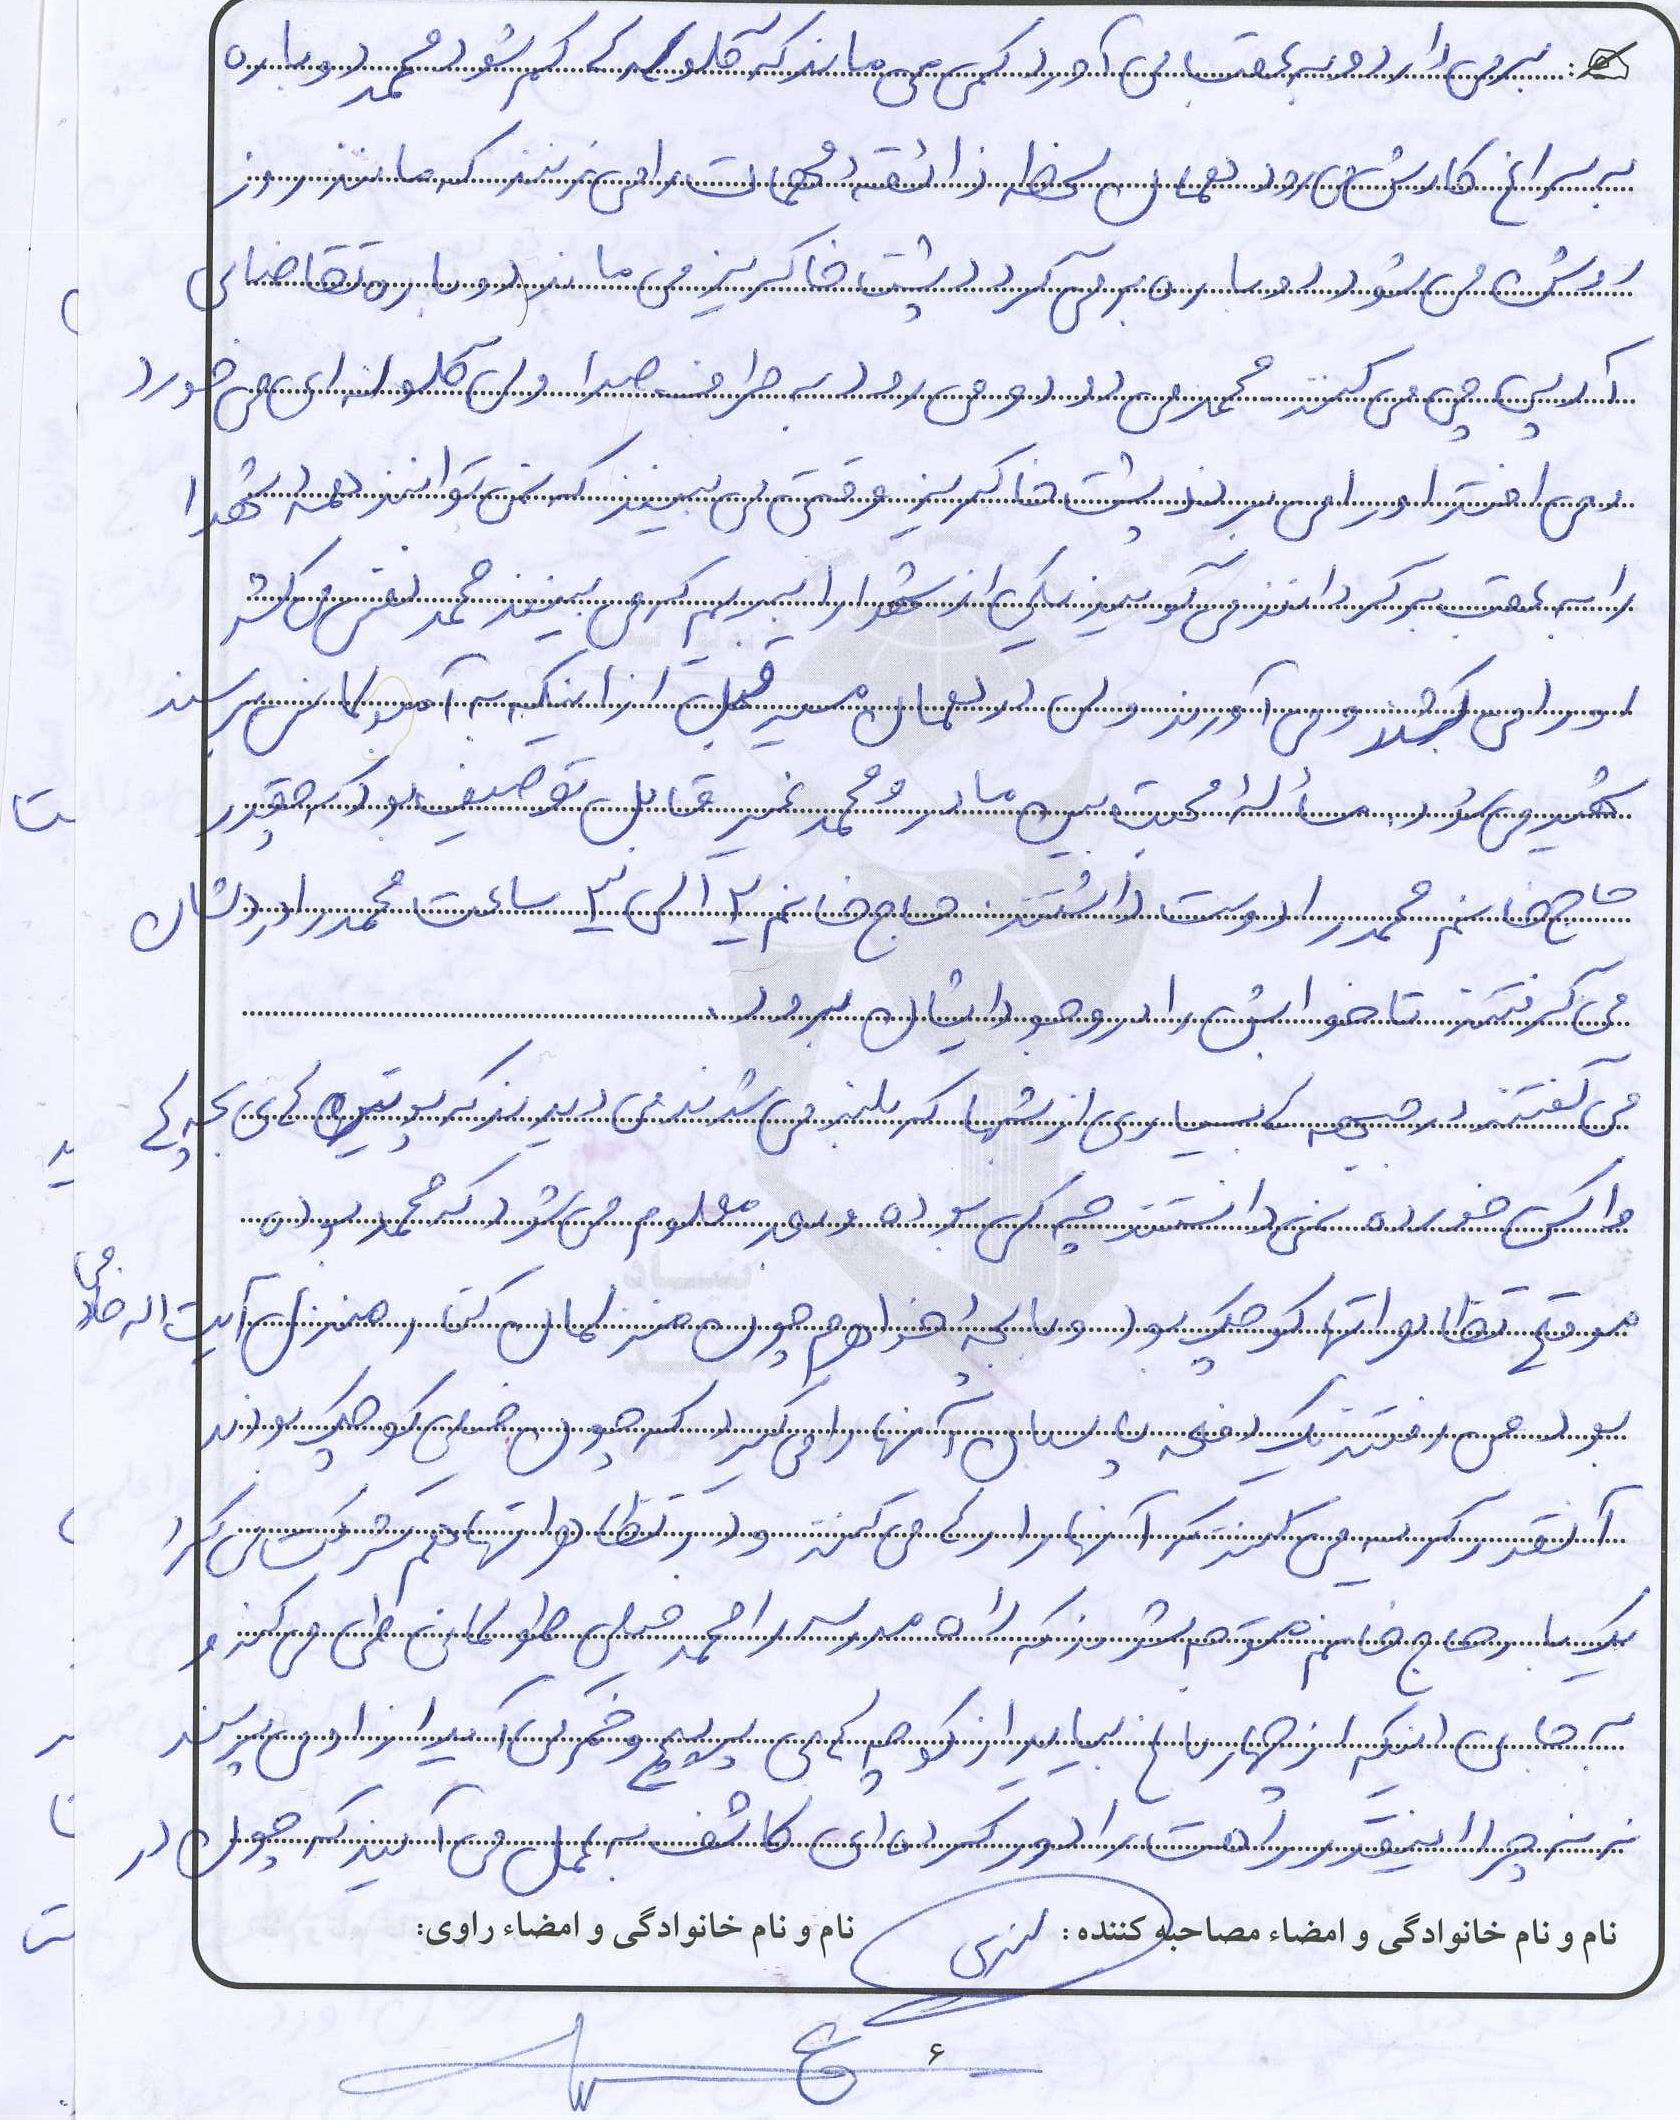 برمی دارد و به عقب می آورد کمی می ماند که گلوله کم شود محمد دوباره
به سراغ کارش می رود همان لحظه ذائقه مهمات را می زنند که مانند روز
روشن می شود دوباره برمی گردد پشت خاکریز می ماند دوباره تقاضای
آر پی جی می کنند محمد می دود و می رود به طرف صدا ولی گلوله ای می خورد
و می افتد او را می برند پشت خاکریز وقتی می بینند که نمی توانند همه شهدا
را به عقب برگردانند می گویند یکی از شهدا را ببریم که می بینند محمد نفس می کشد
او را می کشند و می آورند ولی در همان مسیر قبل از اینکه به آمبولانس برسند
شهید می شود. مسأله محبت بین مادر و محمد غیر قابل توصیف بود که چقدر
حاج خانم محمد را دوست داشتند حاج خانم ۲ الی ۳ ساعت محمد را در بغلشان
می گرفتند تا خوابش را در وجود ایشان ببرود.
می گفتند در جبهه بسیاری از شبها که بلند می شدند می دیدند که پوتین های بچه ها
واکس خورده نمی دانستند چه کسی بوده و بعد معلوم می شود که محمد بوده
موقع تظاهراتها کوچک بود و با بچه خواهرم چون منزلمان کنار منزل آیت اله خادمی
بود می رفتند یک دفعه پاسبان آنها را می گیرد که چون خیلی کوچک بودند
آنقدر گریه می کنند که آنها را رها می کنند و در تظاهراتها هم شرکت می کرد
یک بار حاج خانم متوجه شدند که راه مدرسه را محمد خیلی طولانی طی می کند و
به جای اینکه از چهارباغ بیاید از کوچه های پرپیچ و خم می آید از او می پرسند
ننه چرا اینقدر راهت را دور کرده ای کاشف به عمل می آید که چون در
نام و نام خانوادگی و امضاء مصاحبه کننده: نام و نام خانوادگی و امضاء راوی:
۶